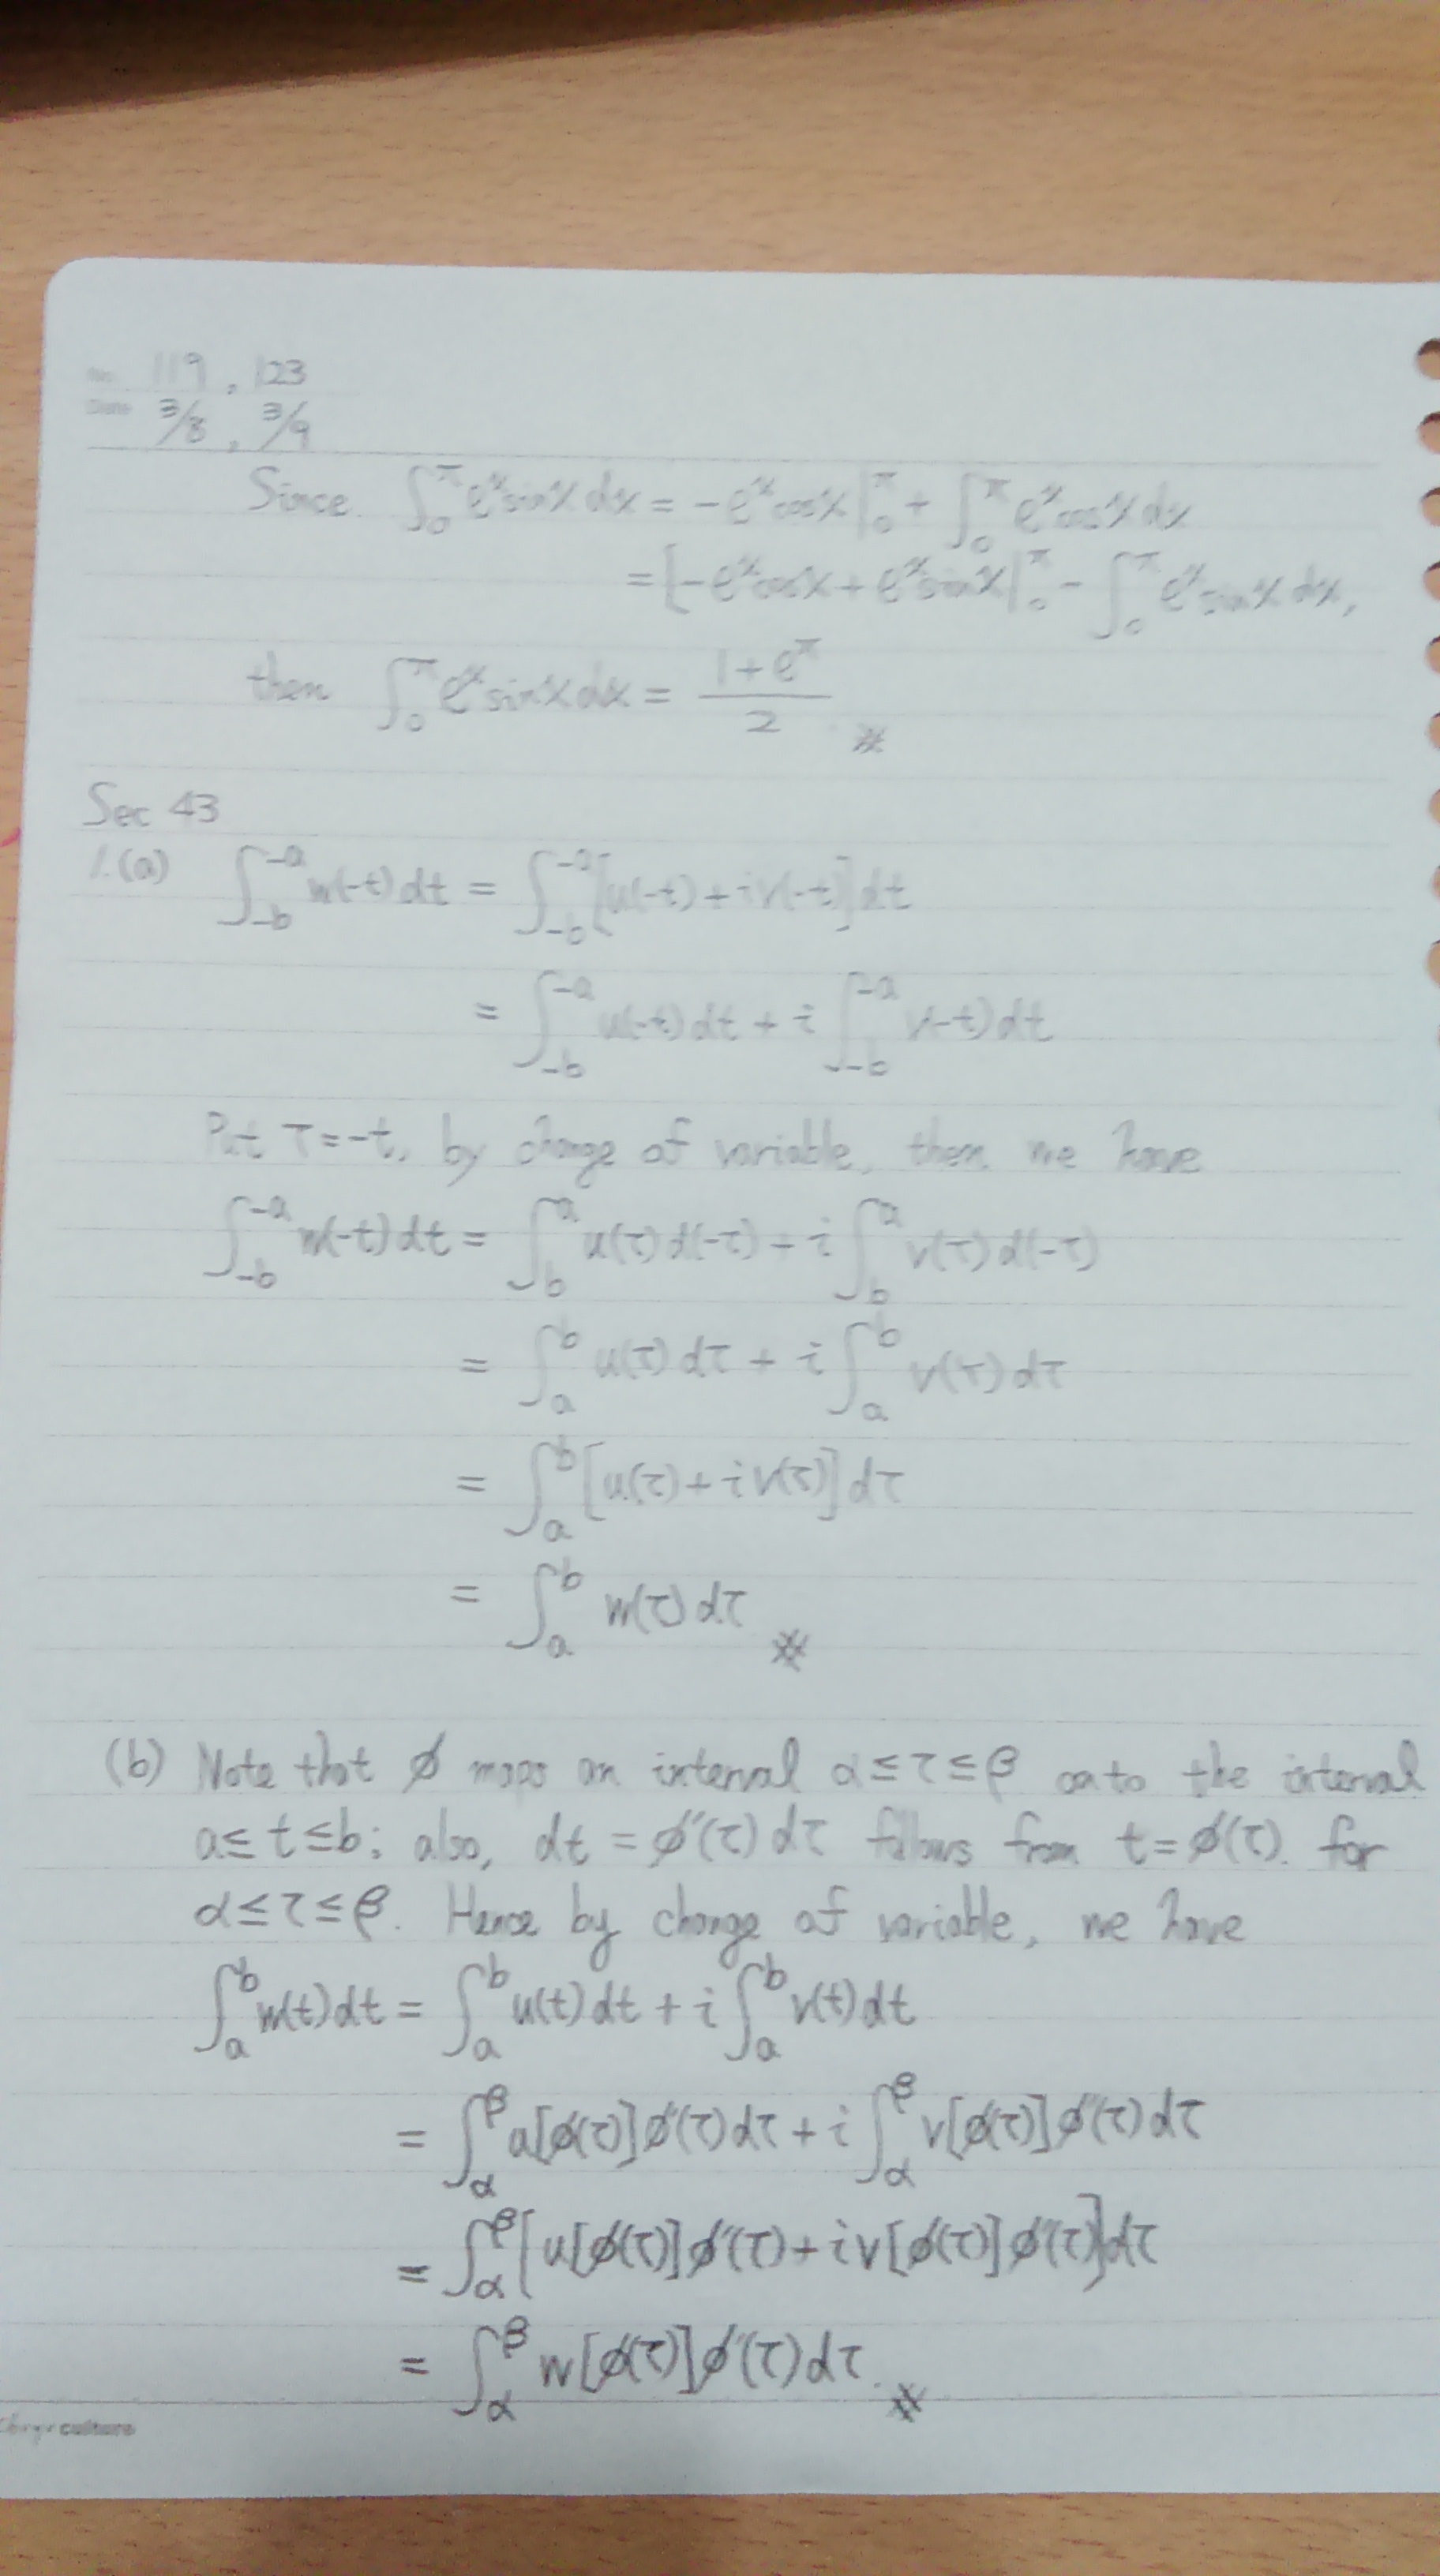 No. 119, 123
Date 3/8, 3/9
Since ∫₀^π eˣ sinx dx = -eˣ cosx |₀^π + ∫₀^π eˣ cosx dx
= [-eˣ cosx + eˣ sinx |₀^π - ∫₀^π eˣ sinx dx,
then ∫₀^π eˣ sinx dx = (1+e^π)/2 ※
Sec 43
1.(a) ∫_{-b}^{-a} w(-t)dt = ∫_{-b}^{-a} [u(-t)+iv(-t)]dt
= ∫_{-b}^{-a} u(-t)dt + i ∫_{-b}^{-a} v(-t)dt
Put τ=-t, by change of variable, then we have
∫_{-b}^{-a} w(-t)dt = ∫_b^a u(τ)d(-τ) + i ∫_b^a v(τ)d(-τ)
= ∫_a^b u(τ)dτ + i ∫_a^b v(τ)dτ
= ∫_a^b [u(τ)+iv(τ)]dτ
= ∫_a^b w(τ)dτ ※
(b) Note that ϕ maps an interval α≤τ≤β onto the interval
a≤t≤b; also, dt = ϕ'(τ)dτ follows from t=ϕ(τ). for
α≤τ≤β. Hence by change of variable, we have
∫_a^b w(t)dt = ∫_a^b u(t)dt + i ∫_a^b v(t)dt
= ∫_α^β u[ϕ(τ)]ϕ'(τ)dτ + i ∫_α^β v[ϕ(τ)]ϕ'(τ)dτ
= ∫_α^β [u[ϕ(τ)]ϕ'(τ)+iv[ϕ(τ)]ϕ'(τ)]dτ
= ∫_α^β w[ϕ(τ)]ϕ'(τ)dτ. ※
culture